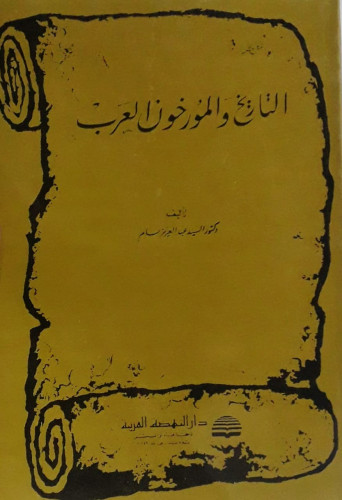 التاريخ والمؤرخون العرب
تأليف
دكتور السيد عبد العزيز سالم
دار النهضة العربية
للطباعة والنشر